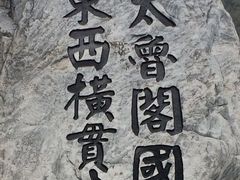 太魯閣國
東西橫貫